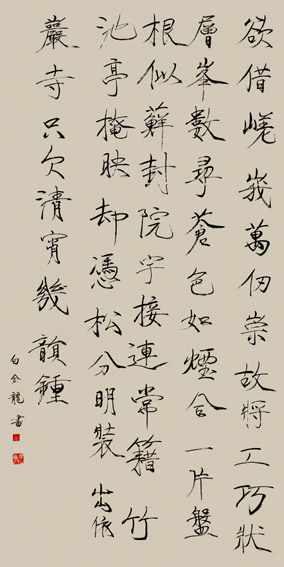 欲借嵯峨萬仞崇故將工巧狀
層峯數尋蒼色如煙合一片盤
根似蘚封院宇接連常籍竹
池亭掩映却憑松分明裝出依
巖寺只欠清宵幾韻鍾
白金龍書